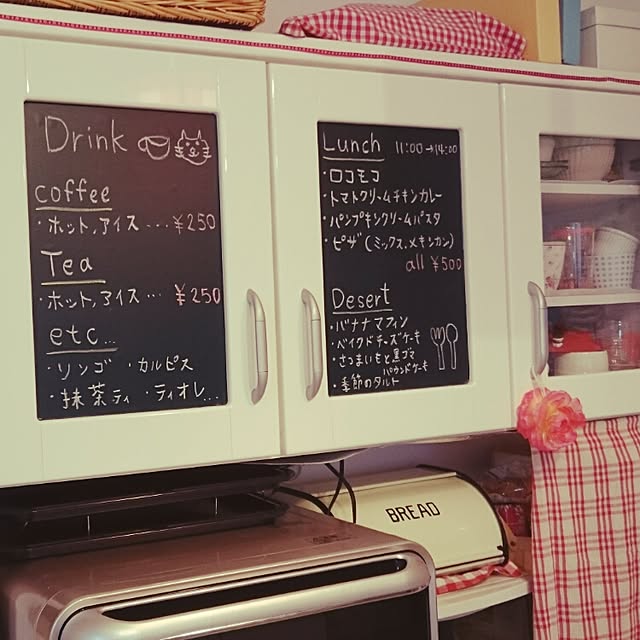 Drink
coffee
・ホット,アイス・・・¥250
Tea
・ホット,アイス・・・¥250
etc...
・リンゴ ・カルピス
・抹茶ティ ・ティオレ...
Lunch 11:00→14:00
・ロコモコ
・トマトクリームチキンカレー
・パンプキンクリームパスタ
・ピザ(ミックス,メキシカン)
all ¥500
Desert
・バナナマフィン
・ベイクドチーズケーキ
・さつまいもと黒ゴマ
パウンドケーキ
・季節のタルト
BREAD